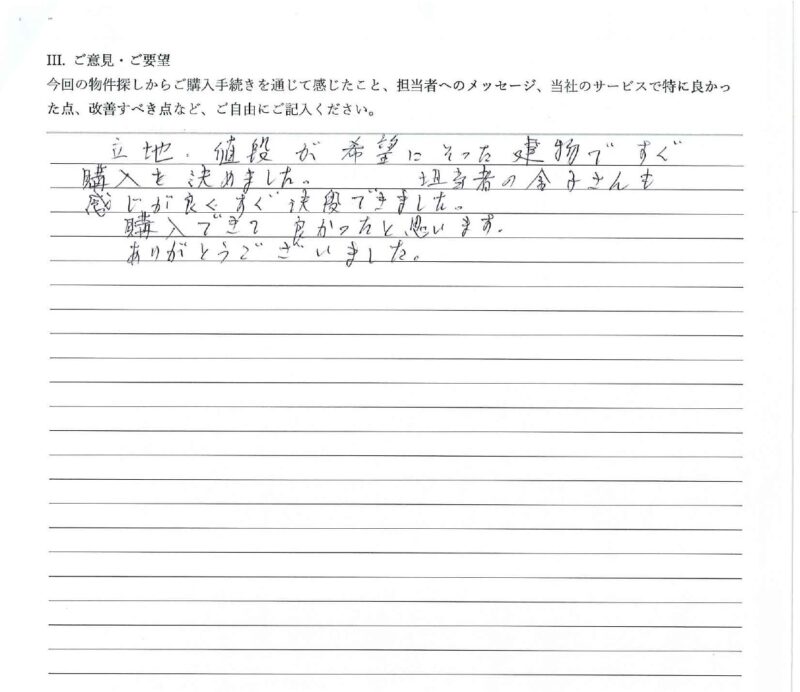 III. ご意見・ご要望
今回の物件探しからご購入手続きを通じて感じたこと、担当者へのメッセージ、当社のサービスで特に良かっ
た点、改善すべき点など、ご自由にご記入ください。
立地.値段が希望にそった建物ですぐ
購入を決めました。 担当者の金子さんも
感じが良くすぐ決段できました。
購入できて良かったと思います.
ありがとうございました。